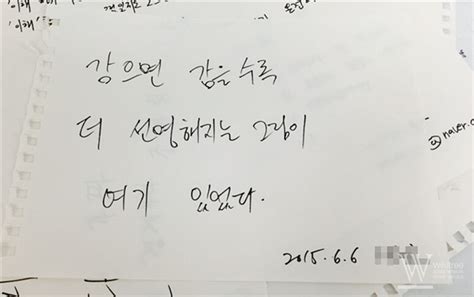 '이해
'이해'
감으면 감을수록
더 선명해지는 그림이
여기 있었다.
@naver.c
2015.6.6
W